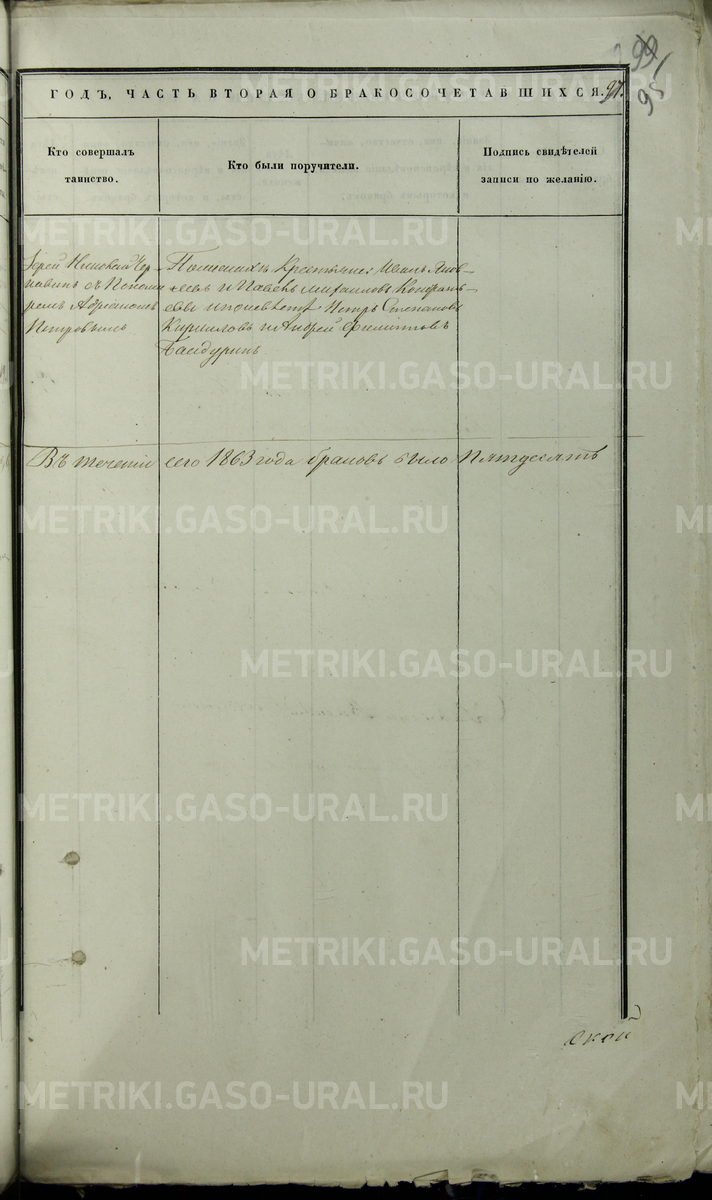 99
98
ГОДЪ, ЧАСТЬ ВТОРАЯ О БРАКОСОЧЕТАВШИХСЯ. 97.
Кто совершалъ
таинство.
Кто были поручители.
Подпись свидѣтелей
записи по желанію.
Іерей Николай Чер
навинъ съ Понома
ремъ Адріаномъ
Петровымъ
Крестьянся Иванъ
и Павелъ Михаиловъ
Петръ Степановъ
Кирилловъ и Андрей Филипповъ
Байдуринъ
Въ теченіи сего 1863 года браковъ было Пятдесятъ
METRIKI.GASO-URAL.RU